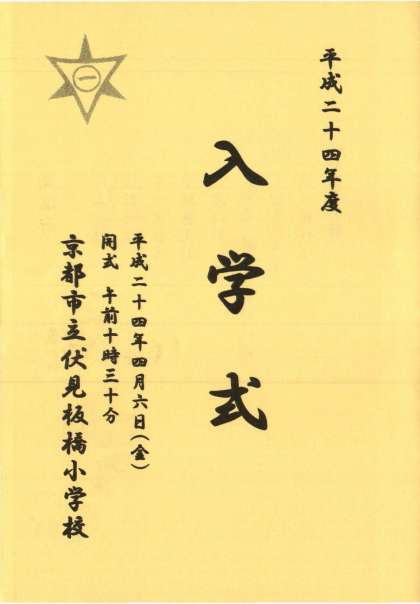 平成二十四年度
入学式
平成二十四年四月六日(金)
開式 午前十時三十分
京都市立伏見板橋小学校
一